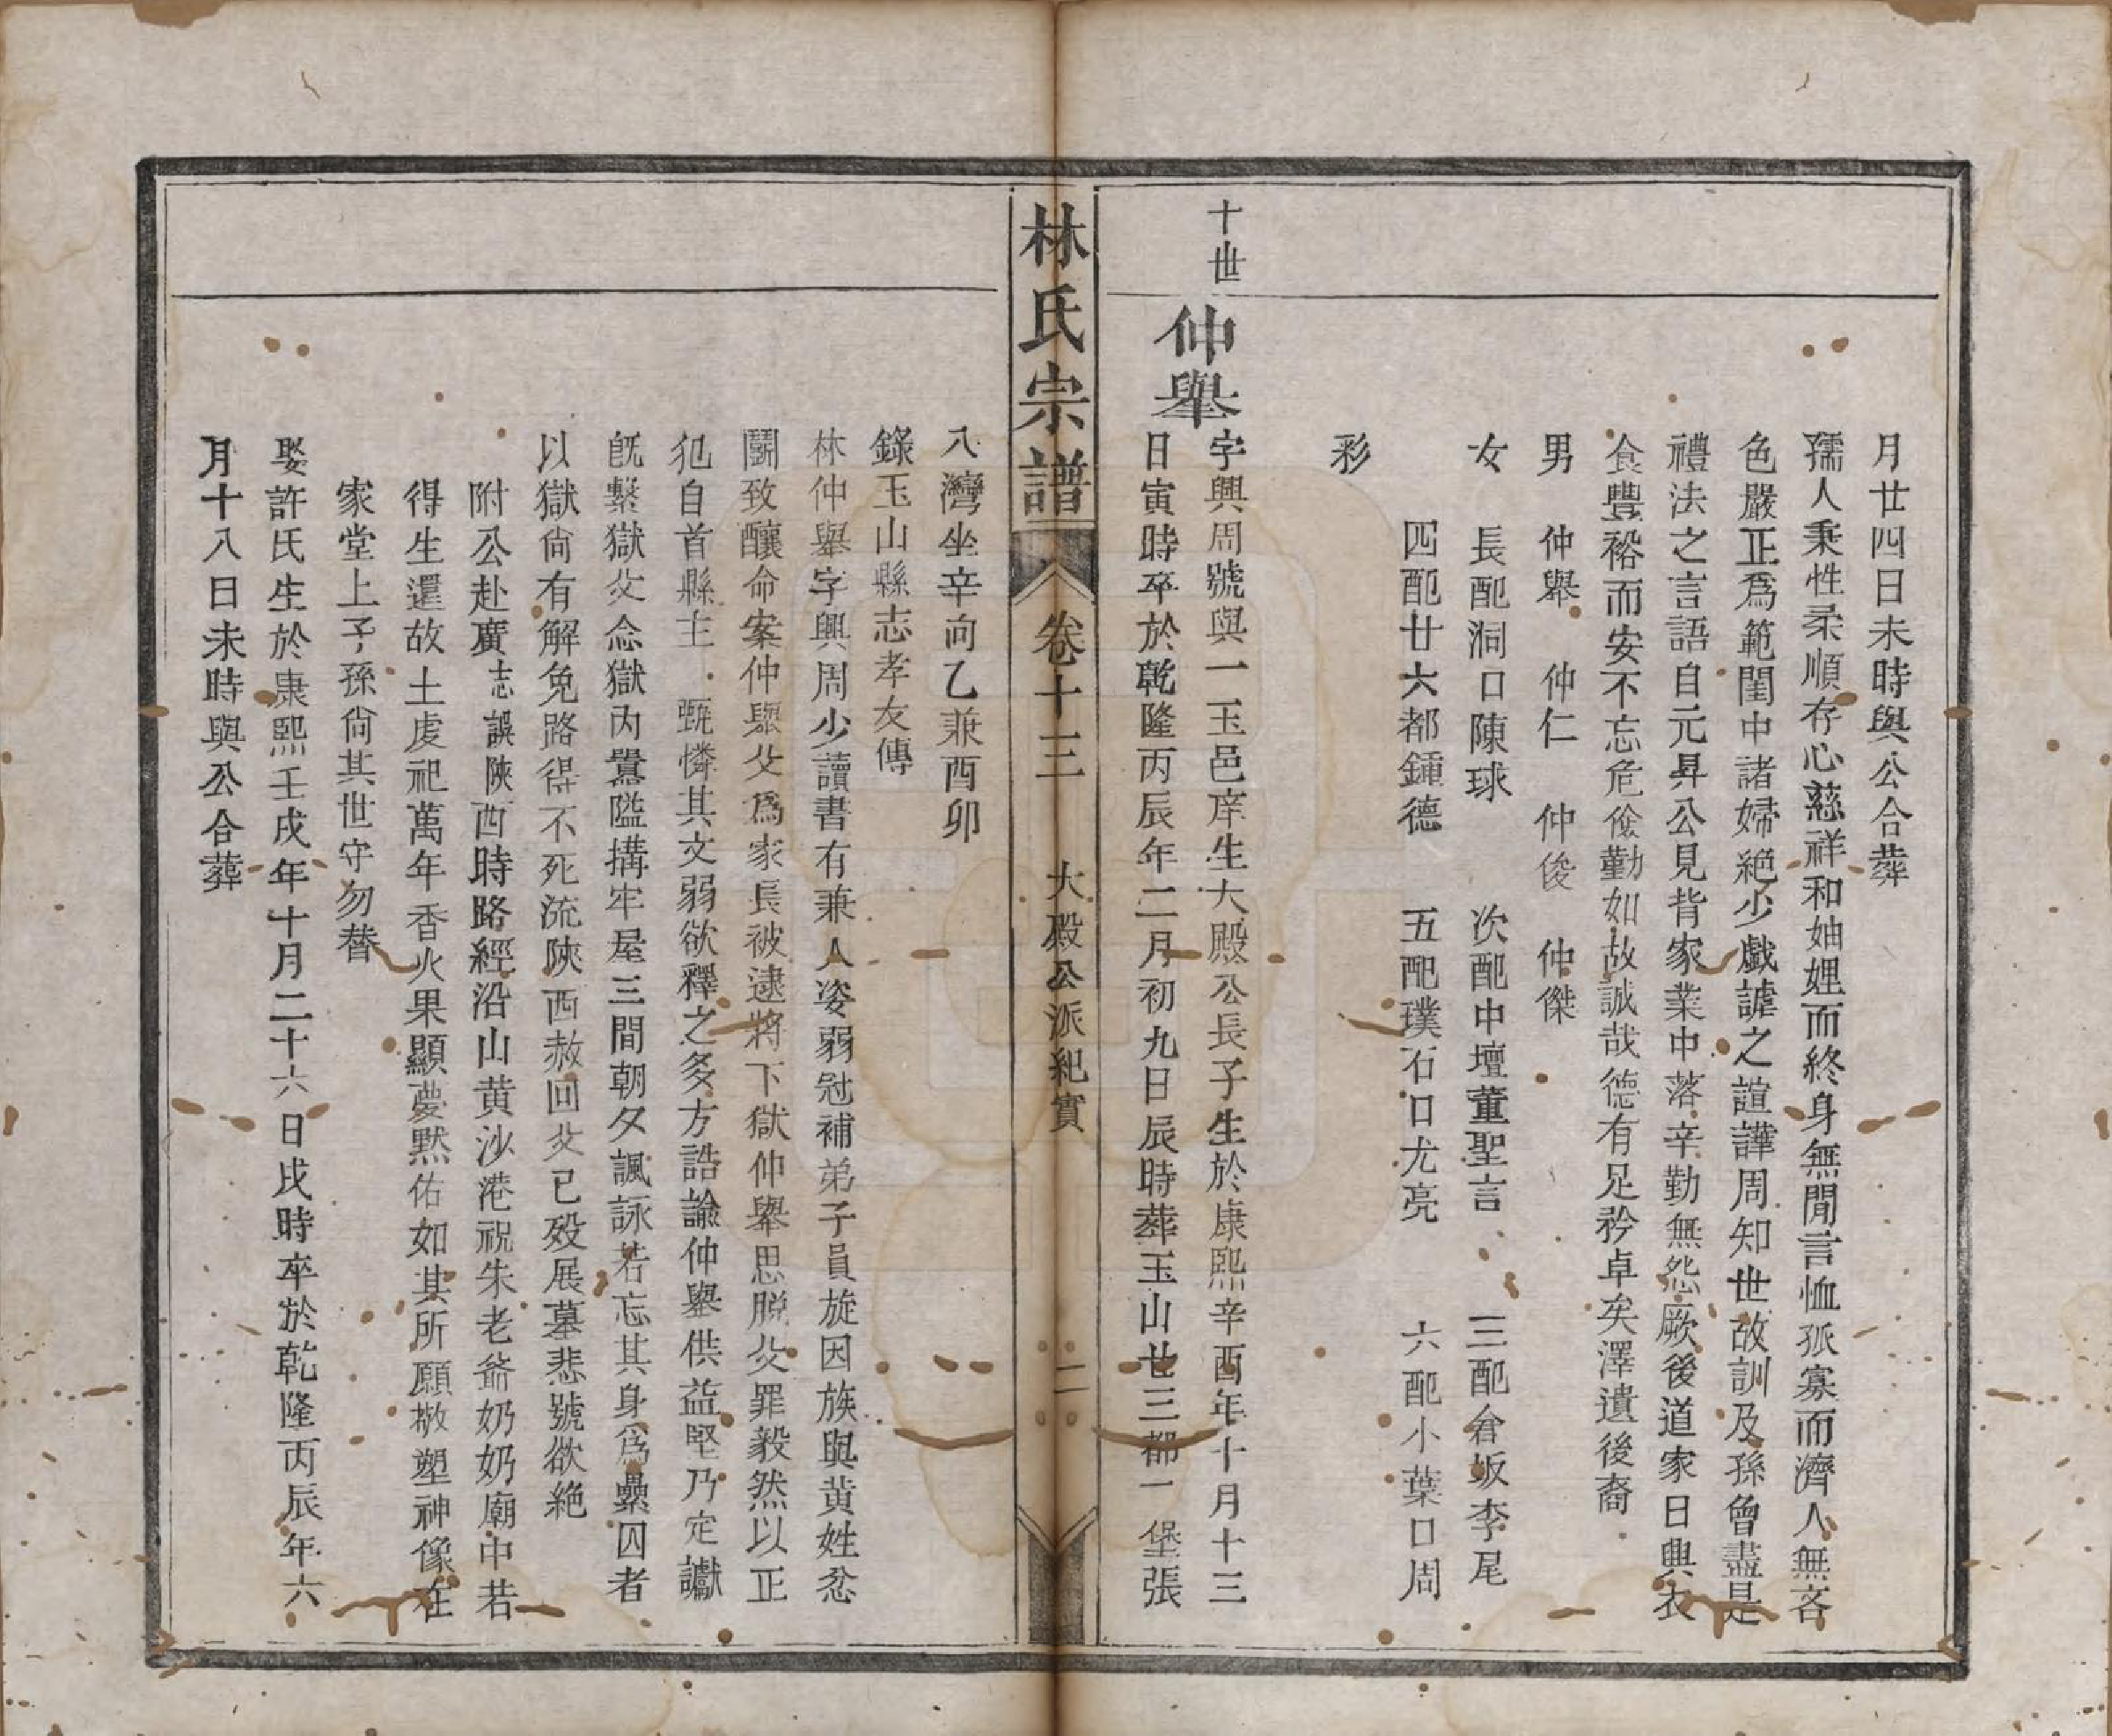 月廿四日未時與公合葬
孺人秉性柔順存心慈祥和妯娌而終身無閒言恤孤寡而濟人無吝
色嚴正爲範閨中諸婦絶少戲謔之諠譁周知世故訓及孫曾盡是
禮法之言語自元昇公見背家業中落辛勤無怨厥後道家日興衣
食豐裕而安不忘危儉勤如故誠哉德有足矜卓矣澤遺後裔
男 仲舉 仲仁 仲俊 仲傑
女 長配洞口陳球 次配中壇董聖言 三配倉坂李尾
四配廿六都鍾德 五配璞石口尤亮 六配小葉口周
彩
十世 仲舉 字興周號與一玉邑庠生大殿公長子生於康熙辛酉年十月十三
日寅時卒於乾隆丙辰年二月初九日辰時葬玉山廿三都一堡張
林氏宗譜 卷十三 大殿公派紀實 二
八灣坐辛向乙兼酉卯
錄玉山縣志孝友傳
林仲舉字興周少讀書有兼人姿弱冠補弟子員旋因族與黃姓忿
鬬致釀命案仲舉父爲家長被逮將下獄仲舉思脱父罪毅然以正
犯自首縣主甄憐其文弱欲釋之多方誥諭仲舉供益堅乃定讞
既繫獄父念獄内囂隘搆牢屋三間朝夕諷詠若忘其身爲纍囚者
以獄尚有解免路得不死流陝西赦回父已歿展墓悲號欲絶
附公赴廣志誤陝西時路經沿山黄沙港祝朱老爺奶奶廟中若
得生還故土虔祀萬年香火果顯夢黙佑如其所願敬塑神像在
家堂上子孫尚其世守勿替
娶許氏生於康熙壬戌年十月二十六日戌時卒於乾隆丙辰年六
月十八日未時與公合葬